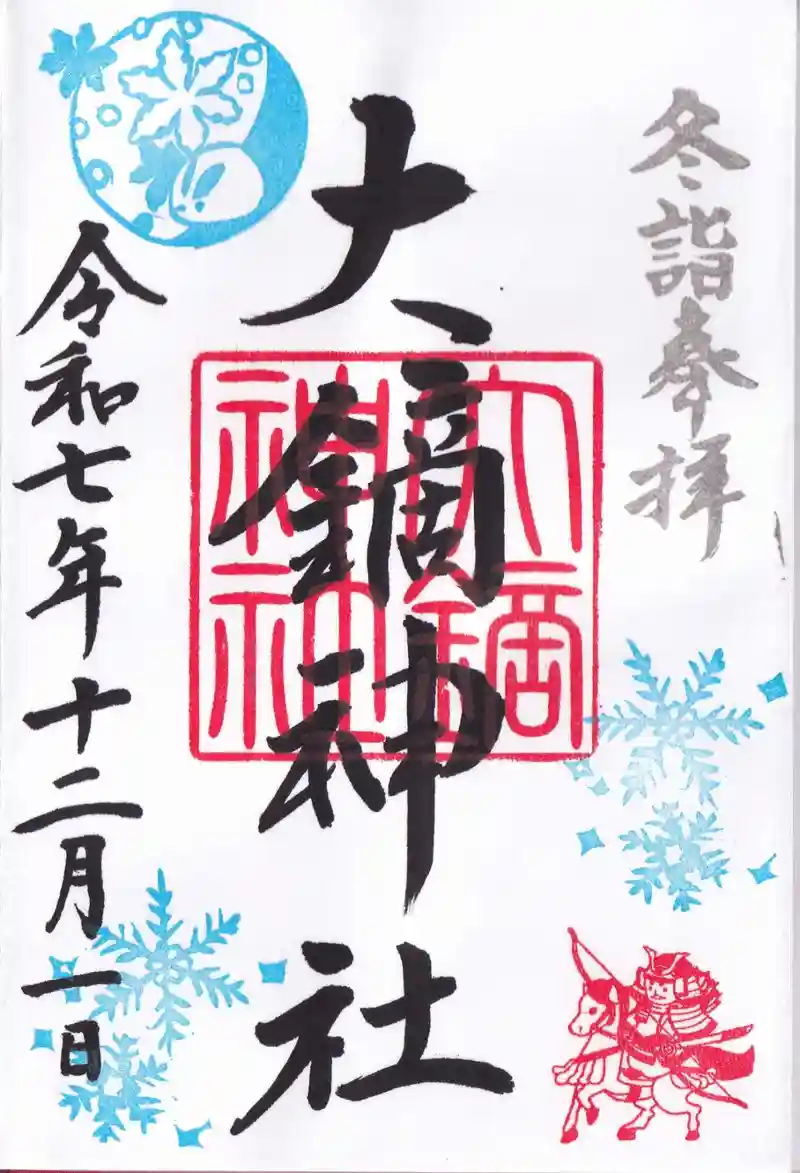 冬詣奉拝
大鏑神社
大鏑
神社
令和七年十二月一日